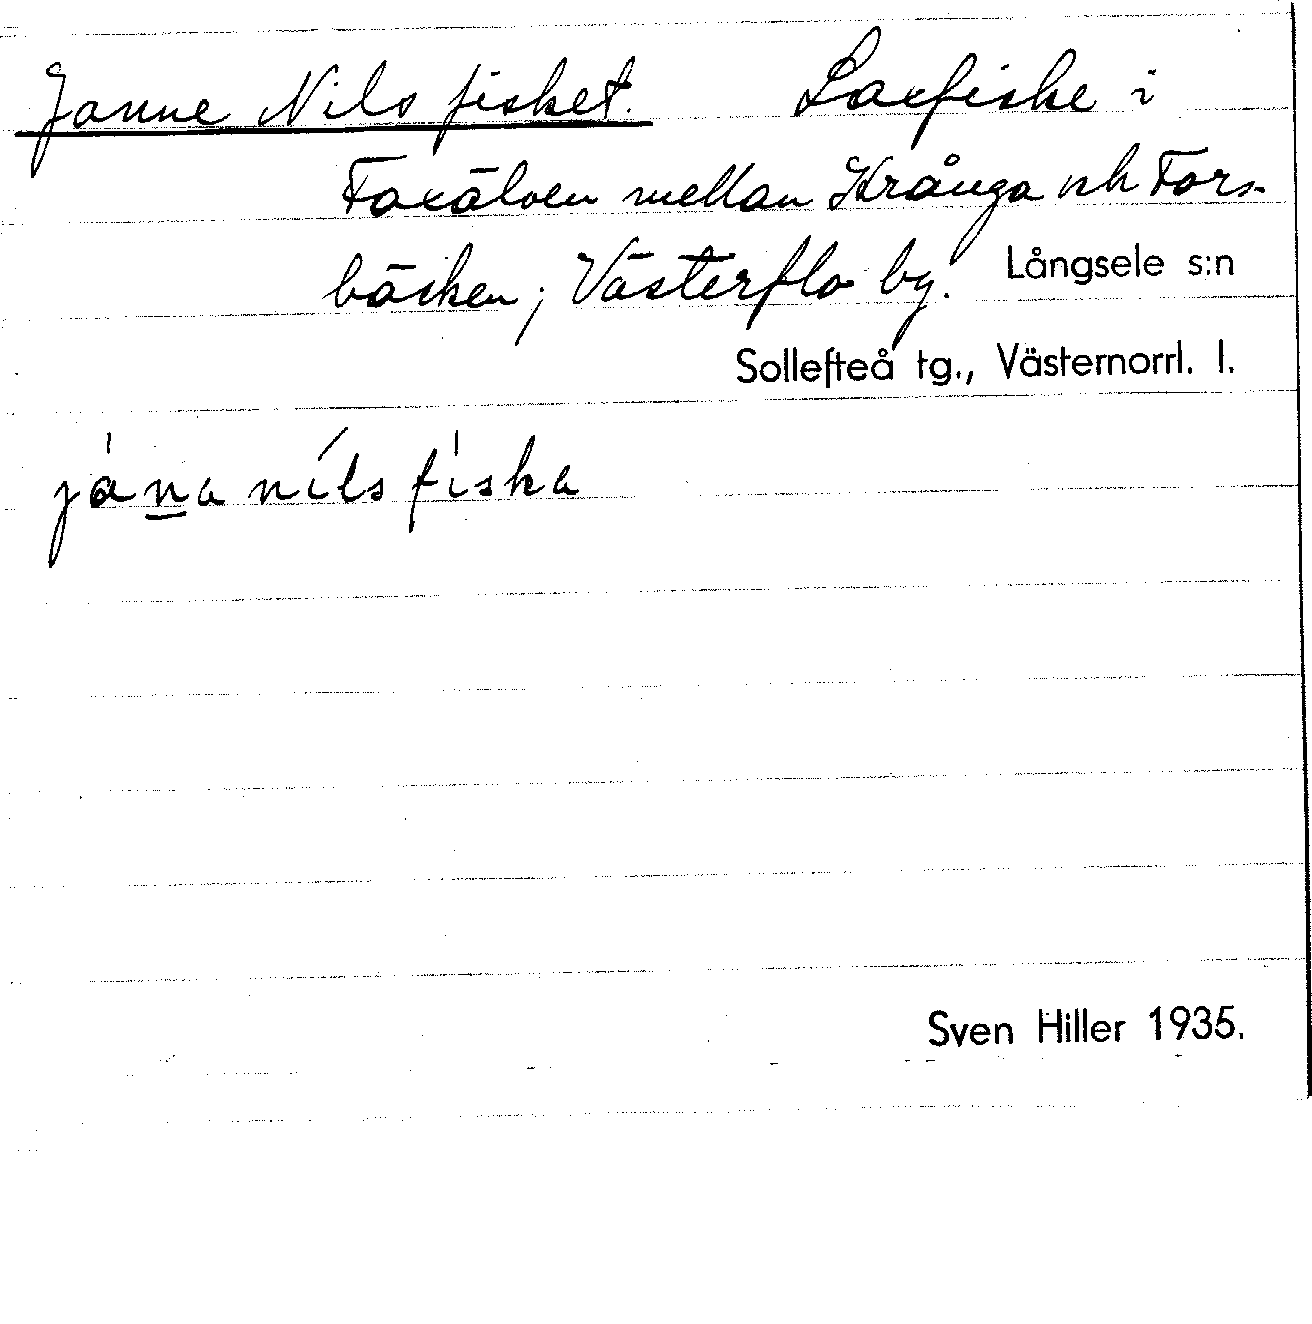 Janne Nils fisket. Laxfiske i
Faxälven mellan Krånga och Fors-
bäcken, Västerflo by. Långsele s:n
Sollefteå tg., Västernorrl. l.
jána níls físka
Sven Hiller 1935.